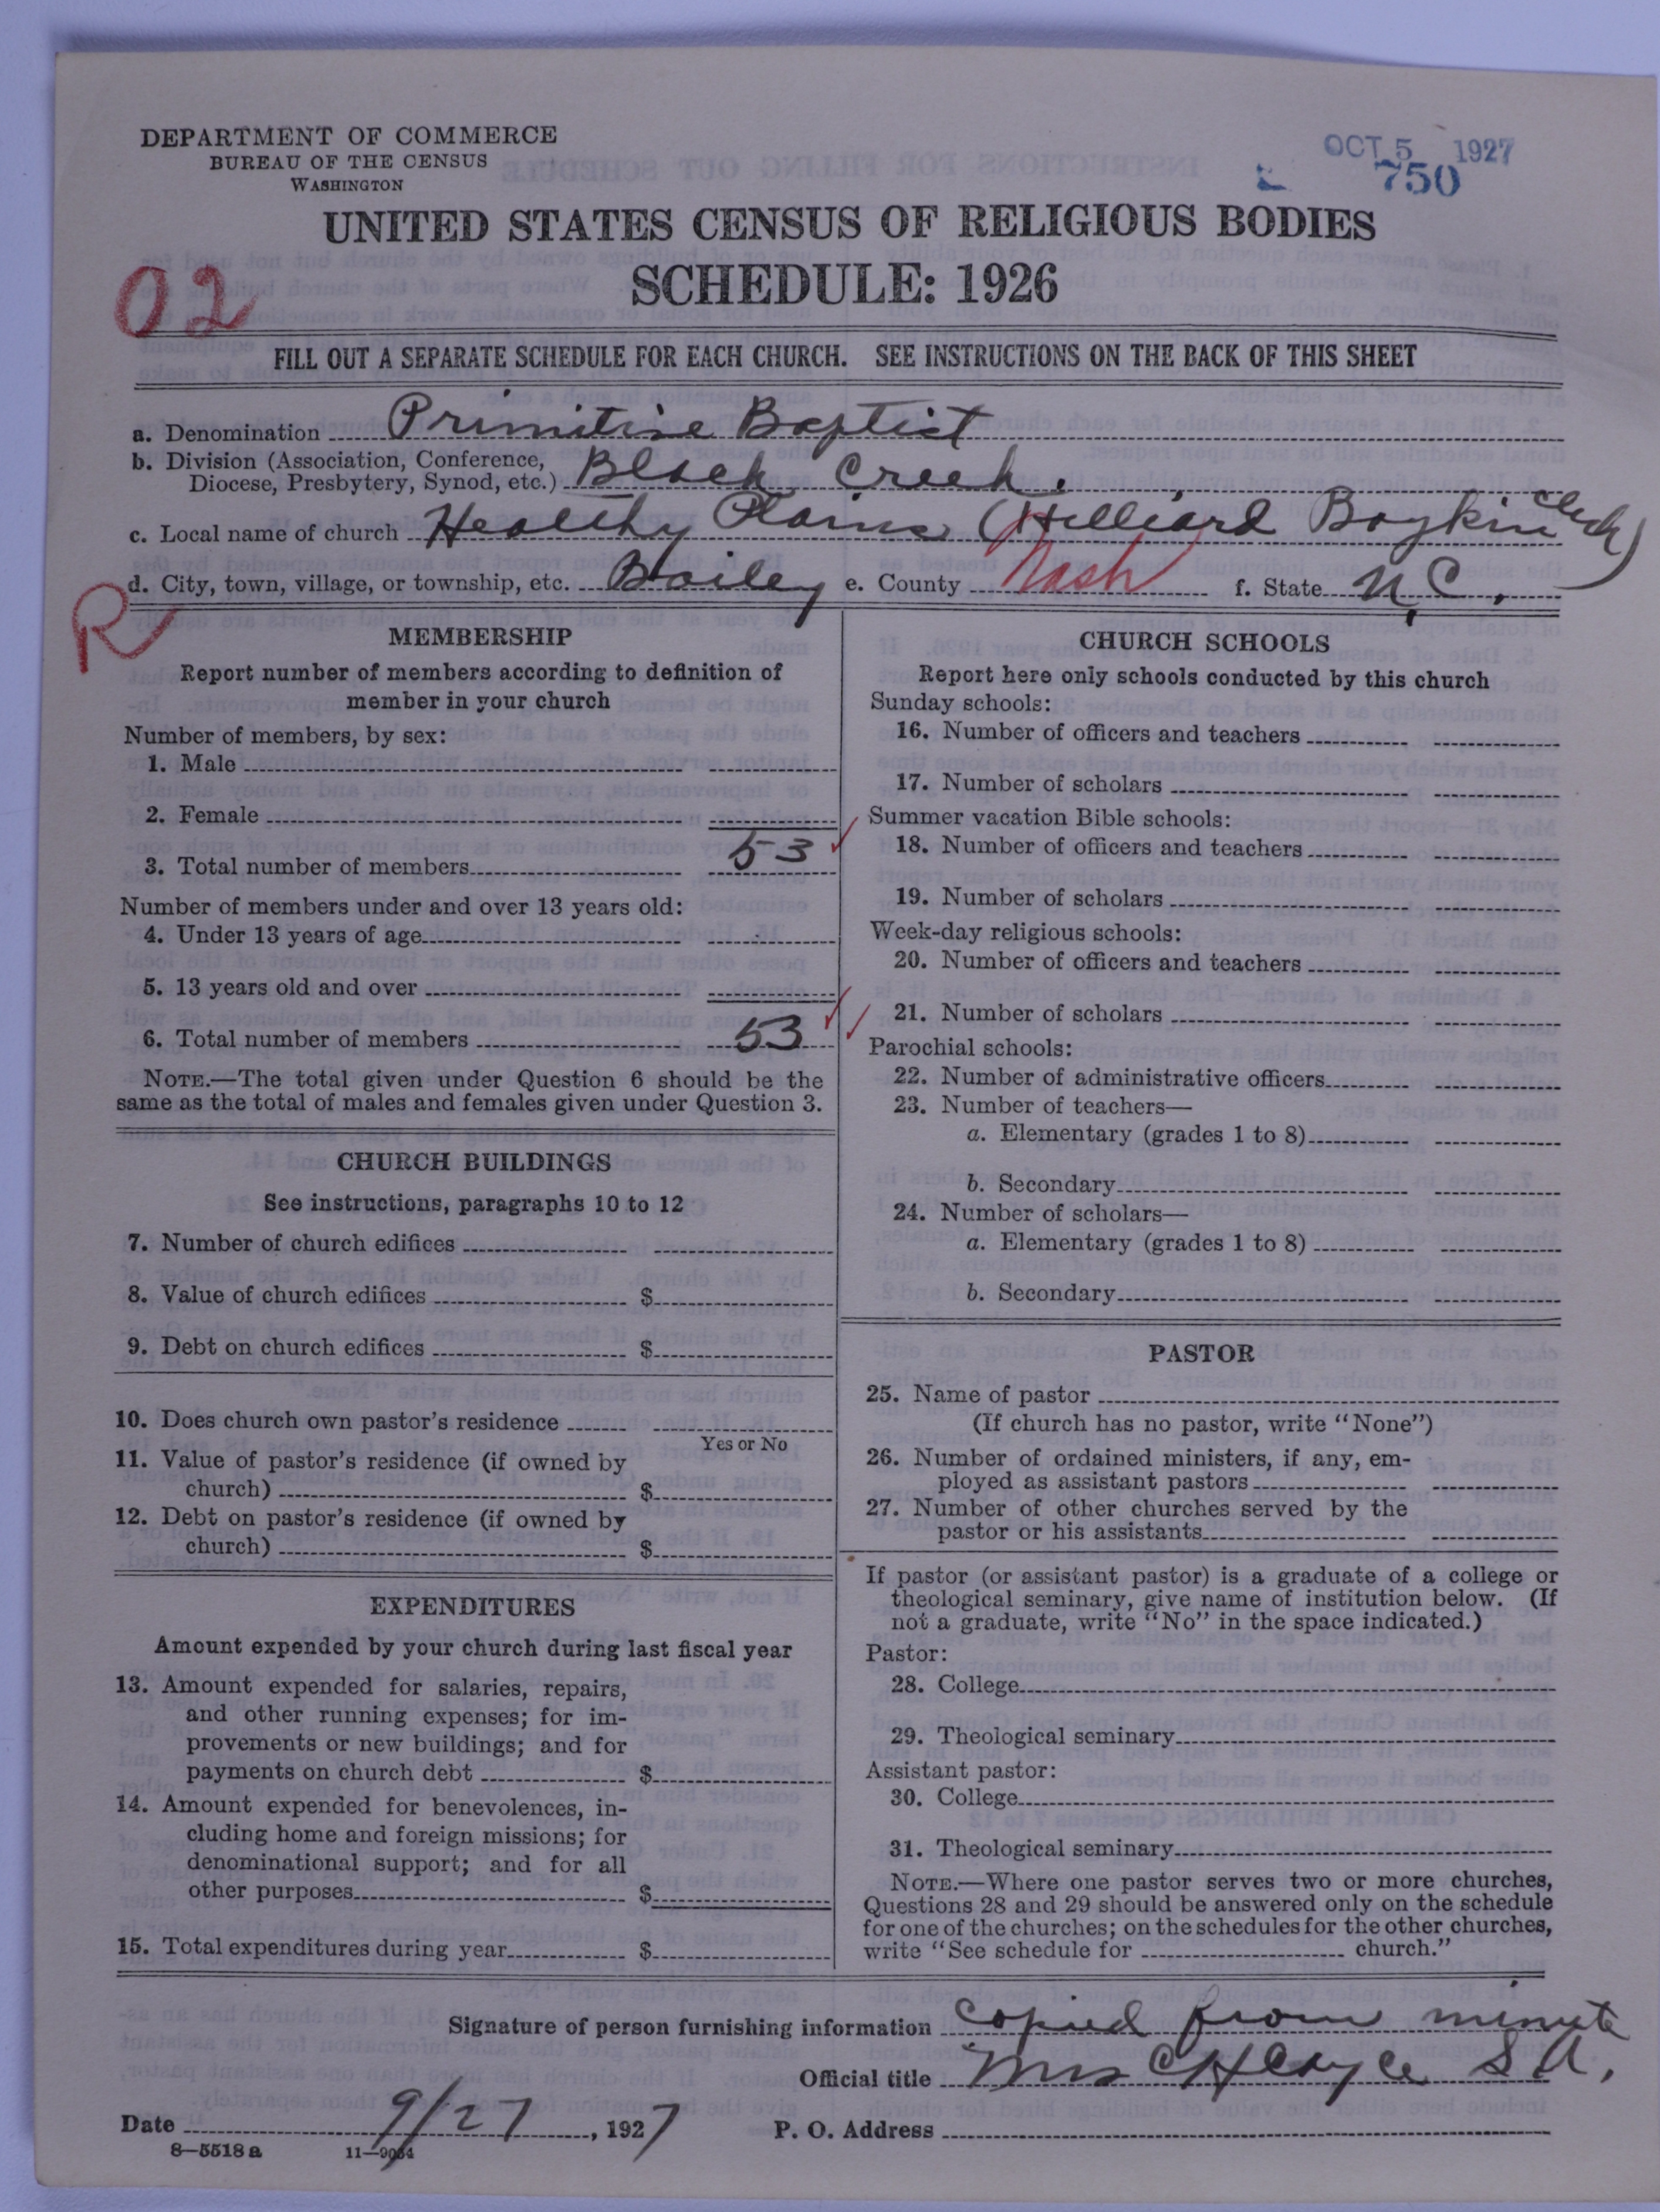 DEPARTMENT OF COMMERCE
BUREAU OF THE CENSUS
WASHINGTON
OCT 5 1927
750
UNITED STATES CENSUS OF RELIGIOUS BODIES
SCHEDULE: 1926
02
FILL OUT A SEPARATE SCHEDULE FOR EACH CHURCH. SEE INSTRUCTIONS ON THE BACK OF THIS SHEET
a. Denomination Primitive Baptist
b. Division (Association, Conference, Diocese, Presbytery, Synod, etc.) Black Creek.
c. Local name of church Healthy Plains (Hilliard Boykin Clerk)
d. City, town, village, or township, etc. Bailey e. County Nash f. State N.C.
R
MEMBERSHIP
Report number of members according to definition of
member in your church
Number of members, by sex:
1. Male
2. Female
3. Total number of members 53
Number of members under and over 13 years old:
4. Under 13 years of age
5. 13 years old and over
6. Total number of members 53
NOTE.—The total given under Question 6 should be the
same as the total of males and females given under Question 3.
CHURCH BUILDINGS
See instructions, paragraphs 10 to 12
7. Number of church edifices
8. Value of church edifices $
9. Debt on church edifices $
10. Does church own pastor's residence
Yes or No
11. Value of pastor's residence (if owned by
church) $
12. Debt on pastor's residence (if owned by
church) $
EXPENDITURES
Amount expended by your church during last fiscal year
13. Amount expended for salaries, repairs,
and other running expenses; for im-
provements or new buildings; and for
payments on church debt $
14. Amount expended for benevolences, in-
cluding home and foreign missions; for
denominational support; and for all
other purposes $
15. Total expenditures during year $
CHURCH SCHOOLS
Report here only schools conducted by this church
Sunday schools:
16. Number of officers and teachers
17. Number of scholars
Summer vacation Bible schools:
18. Number of officers and teachers
19. Number of scholars
Week-day religious schools:
20. Number of officers and teachers
21. Number of scholars
Parochial schools:
22. Number of administrative officers
23. Number of teachers—
a. Elementary (grades 1 to 8)
b. Secondary
24. Number of scholars—
a. Elementary (grades 1 to 8)
b. Secondary
PASTOR
25. Name of pastor
(If church has no pastor, write "None")
26. Number of ordained ministers, if any, em-
ployed as assistant pastors
27. Number of other churches served by the
pastor or his assistants
If pastor (or assistant pastor) is a graduate of a college or
theological seminary, give name of institution below. (If
not a graduate, write "No" in the space indicated.)
Pastor:
28. College
29. Theological seminary
Assistant pastor:
30. College
31. Theological seminary
NOTE.—Where one pastor serves two or more churches,
Questions 28 and 29 should be answered only on the schedule
for one of the churches; on the schedules for the other churches,
write "See schedule for church."
Signature of person furnishing information copied from minute
Official title Mrs C H S A.
Date 9/27, 1927 P. O. Address
8—5518 a 11—9034